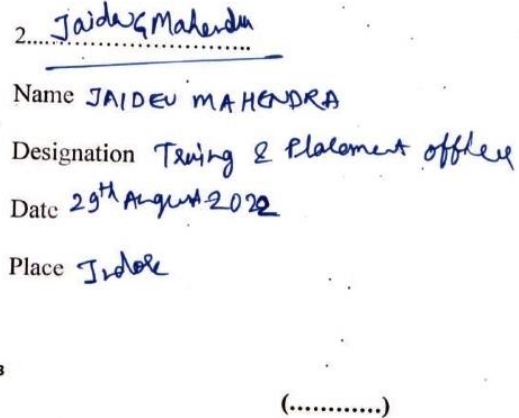 2.... Jaidev Mahendra
Name JAIDEV MAHENDRA
Designation Traing & Placement officer
Date 29th August 2022
Place Indore
3
(............)